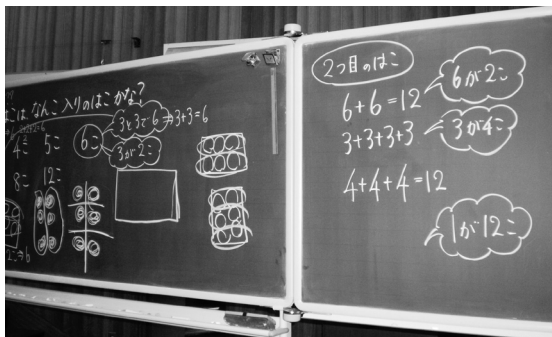 こは なんこ 入りのはこかな?
2+2+2=6
4こ 5こ
6こ
3と3で6 ⇒3+3=6
3が2こ
8こ 12こ
2つ目のはこ
6+6=12
6が2こ
3+3+3+3
3が4こ
4+4+4=12
1が12こ